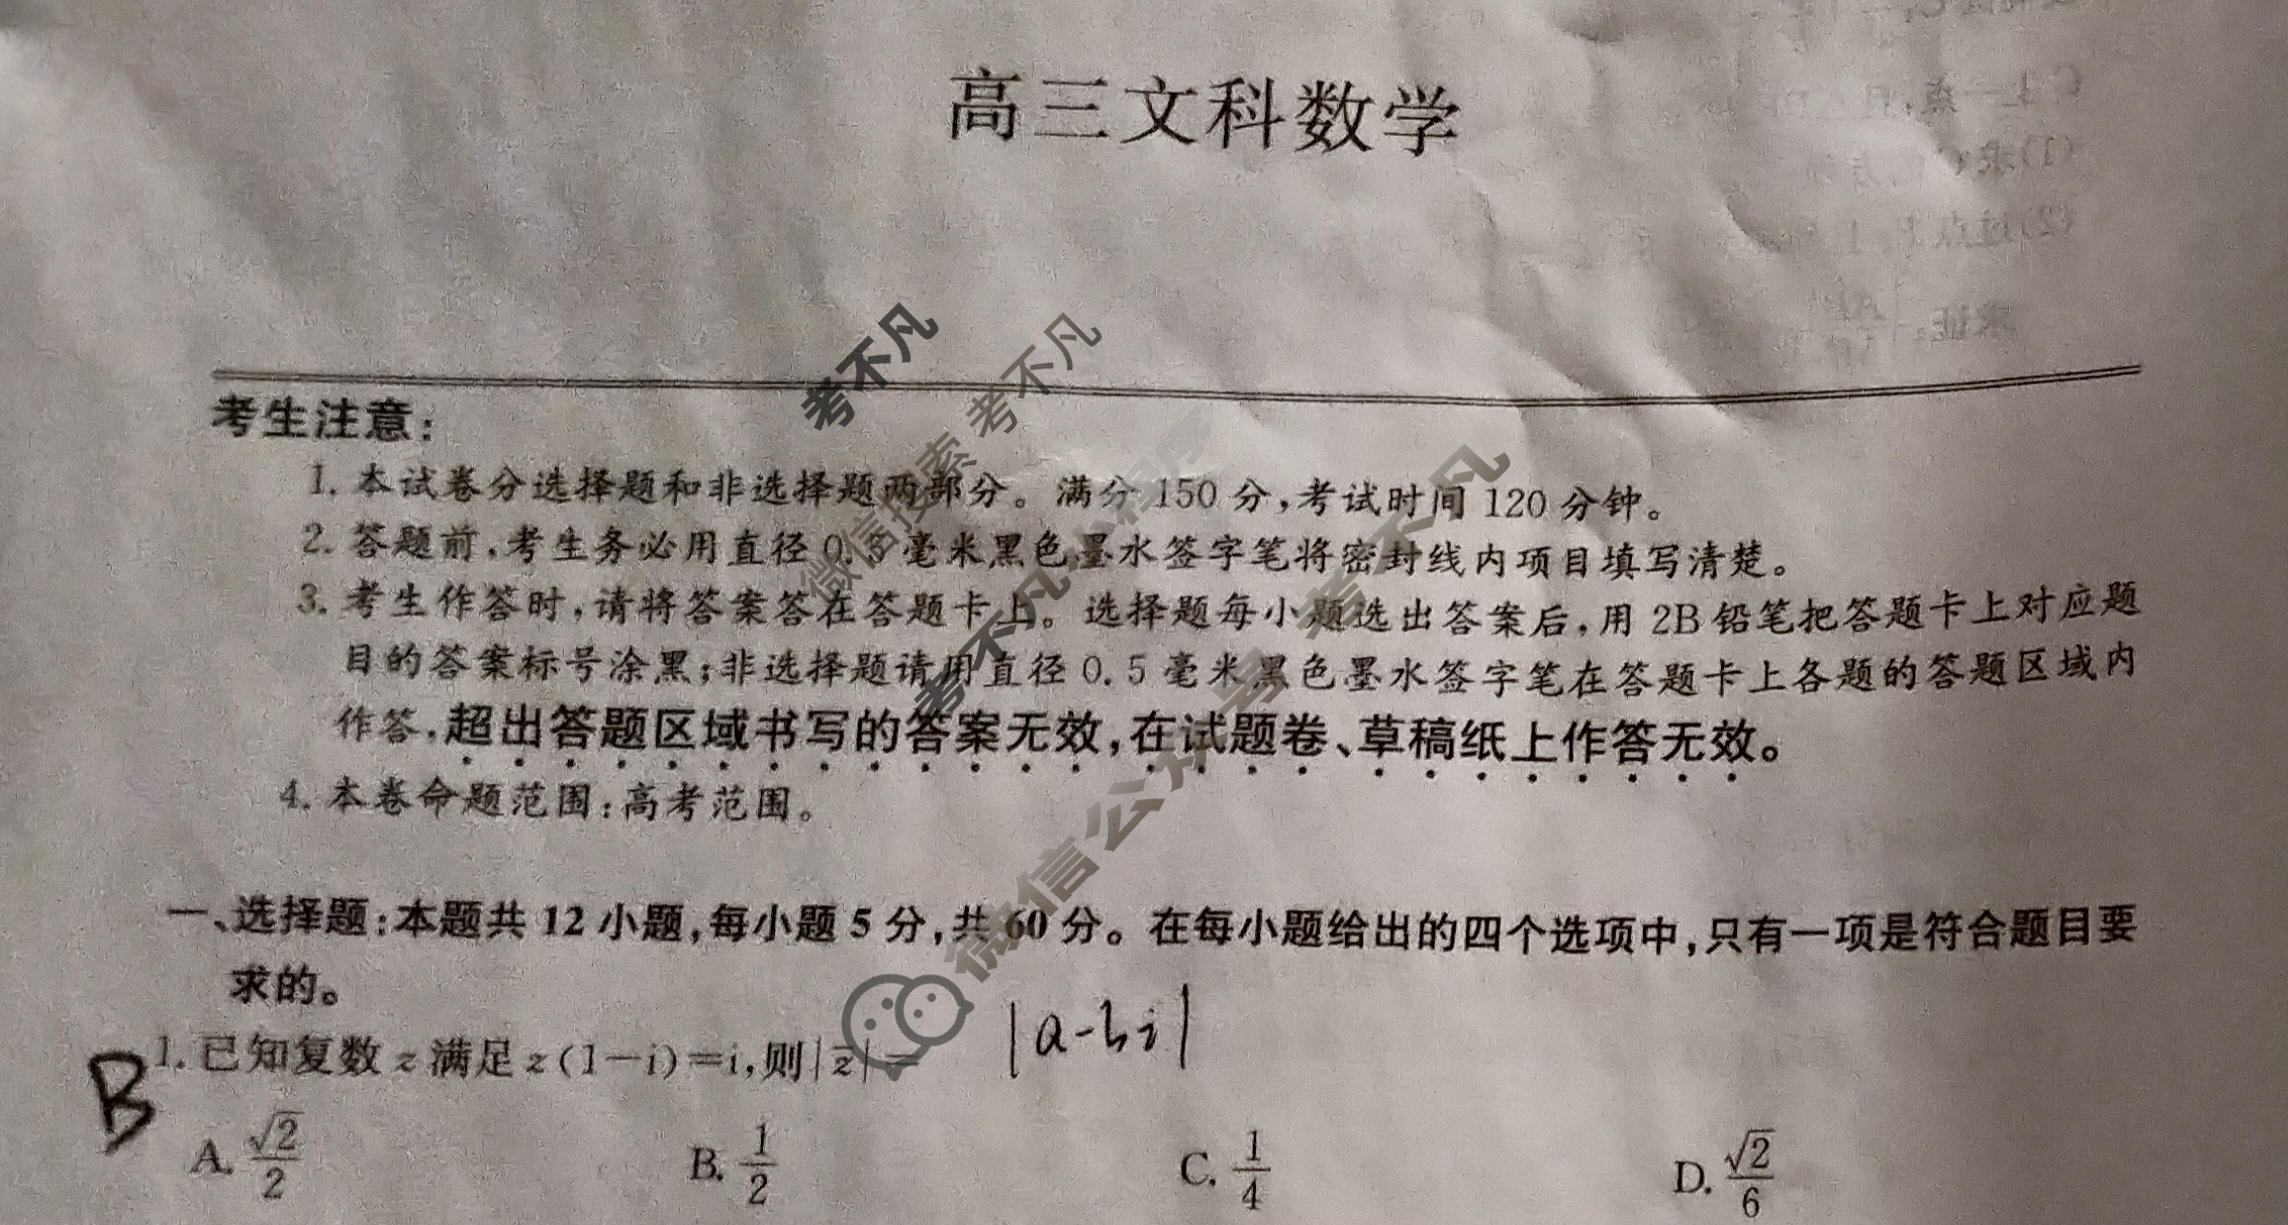 高三文科数学
考生注意:
1. 本试卷分选择题和非选择题两部分。满分 150 分,考试时间 120 分钟。
2. 答题前,考生务必用直径 0.5 毫米黑色墨水签字笔将密封线内项目填写清楚。
3. 考生作答时,请将答案答在答题卡上。选择题每小题选出答案后,用 2B 铅笔把答题卡上对应题
目的答案标号涂黑;非选择题请用直径 0.5 毫米黑色墨水签字笔在答题卡上各题的答题区域内
作答,超出答题区域书写的答案无效,在试题卷、草稿纸上作答无效。
4. 本卷命题范围:高考范围。
一、选择题:本题共 12 小题,每小题 5 分,共 60 分。在每小题给出的四个选项中,只有一项是符合题目要
求的。
|a-bi|
B 1. 已知复数 z 满足 z(1-i)=i,则|z̅|=
A. √2/2 B. 1/2 C. 1/4 D. √2/6
考不凡
微信搜索 考不凡
考不凡小程序
微信公众号 考不凡